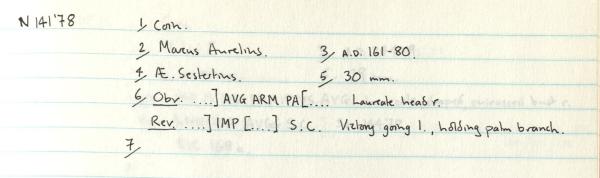 N 141'78 1/ Coin.
2/ Marcus Aurelius. 3/ A.D. 161-80.
4/ Æ. Sestertius. 5/ 30 mm.
6/ Obv. ....] AVG ARM PA[.... Laureate head r.
Rev. ....] IMP [....] S.C. Victory going l., holding palm branch.
7/